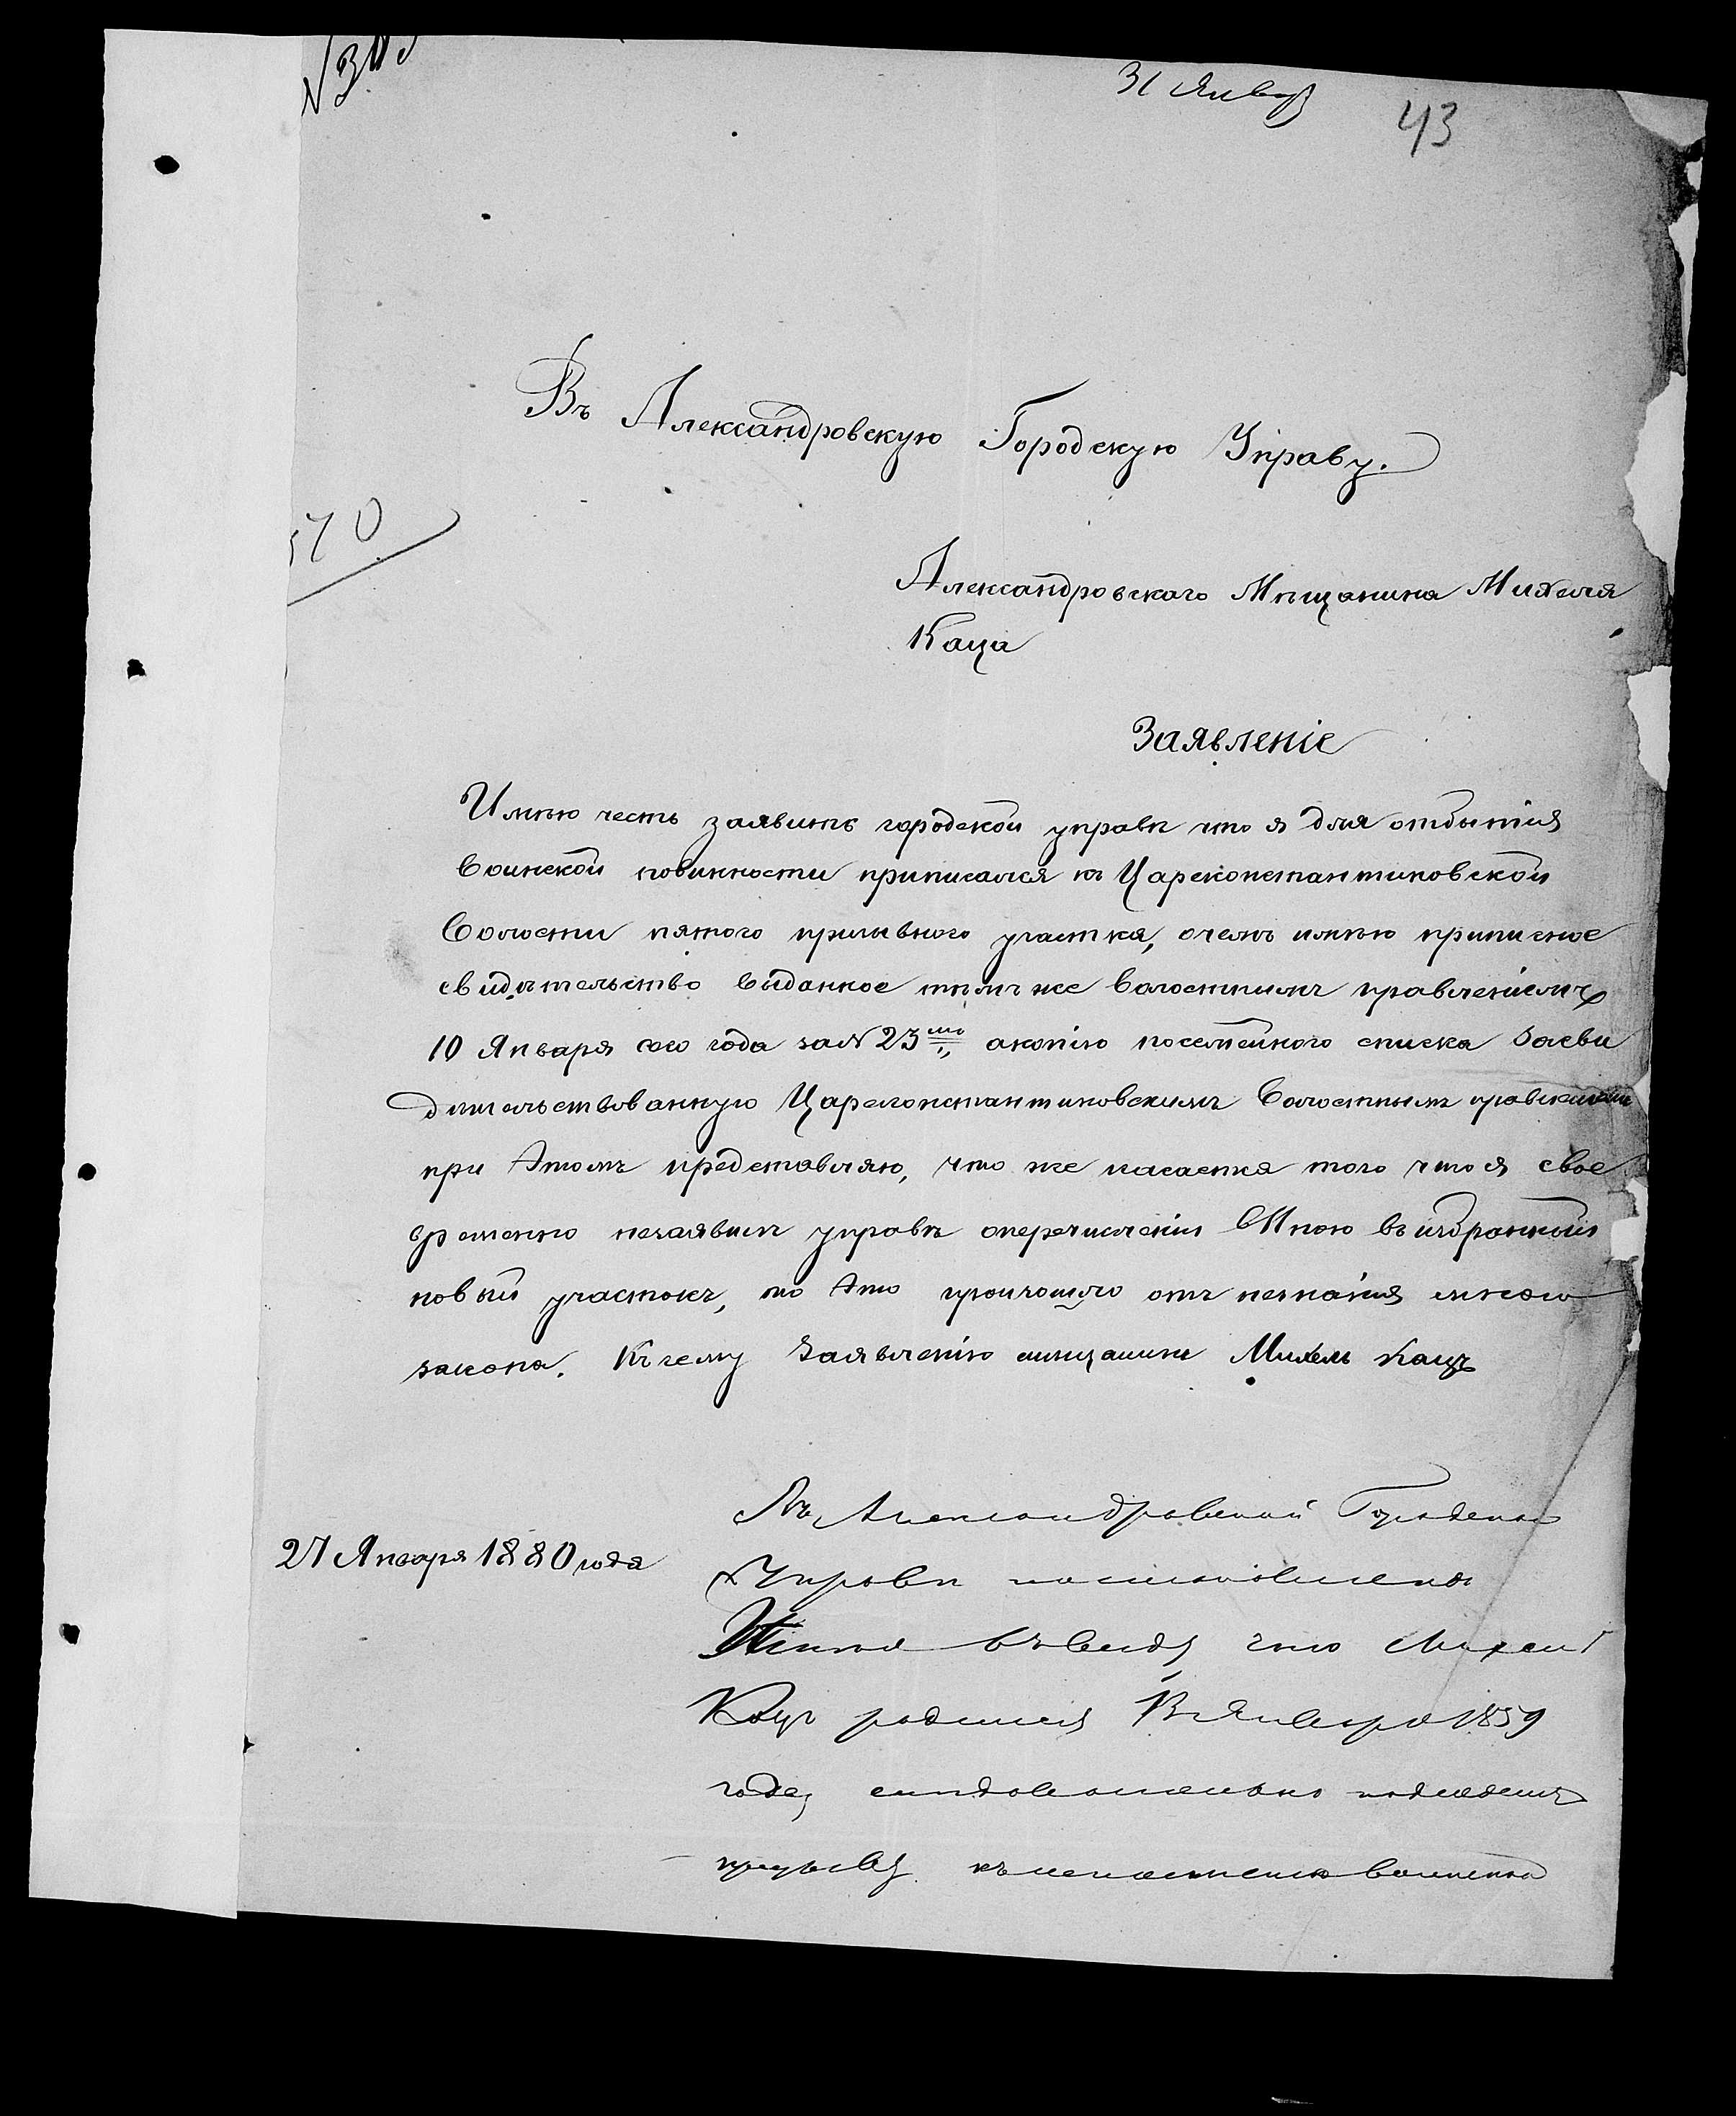 31 Январ
43
Въ Александровскую Городскую Управу.
570
Александровскаго Мѣщанина Михеля
Каца
Заявленіе
Имѣю честь заявить городской управѣ что я для отбытія
воинской повинности приписался къ Цареконстантиновской
волости пятого призывного участка, очемъ имѣю приписное
свидѣтельство выданное тѣмъ же волостнымъ правленіемъ
10 Января сего года за № 23 акопію посемейного списка засви
дѣтельствованную Цареконстантиновскимъ Волостнымъ правленіемъ
при этомъ представляю, что же касается того что я свое
временно незаявилъ управѣ оперечисленіи мною въ избранной
новый участокъ, то это произошло отъ незнанія мною
закона. Къ сему заявленію мищанинъ Михель Кацъ
27 Января 1880 года
Въ Александровской Городской
Управѣ постановлено
Имѣя въ виду что Михель
Кацъ родился В Январѣ 1859
года, слѣдовательно подлежитъ
призыву къ исполненію воинской